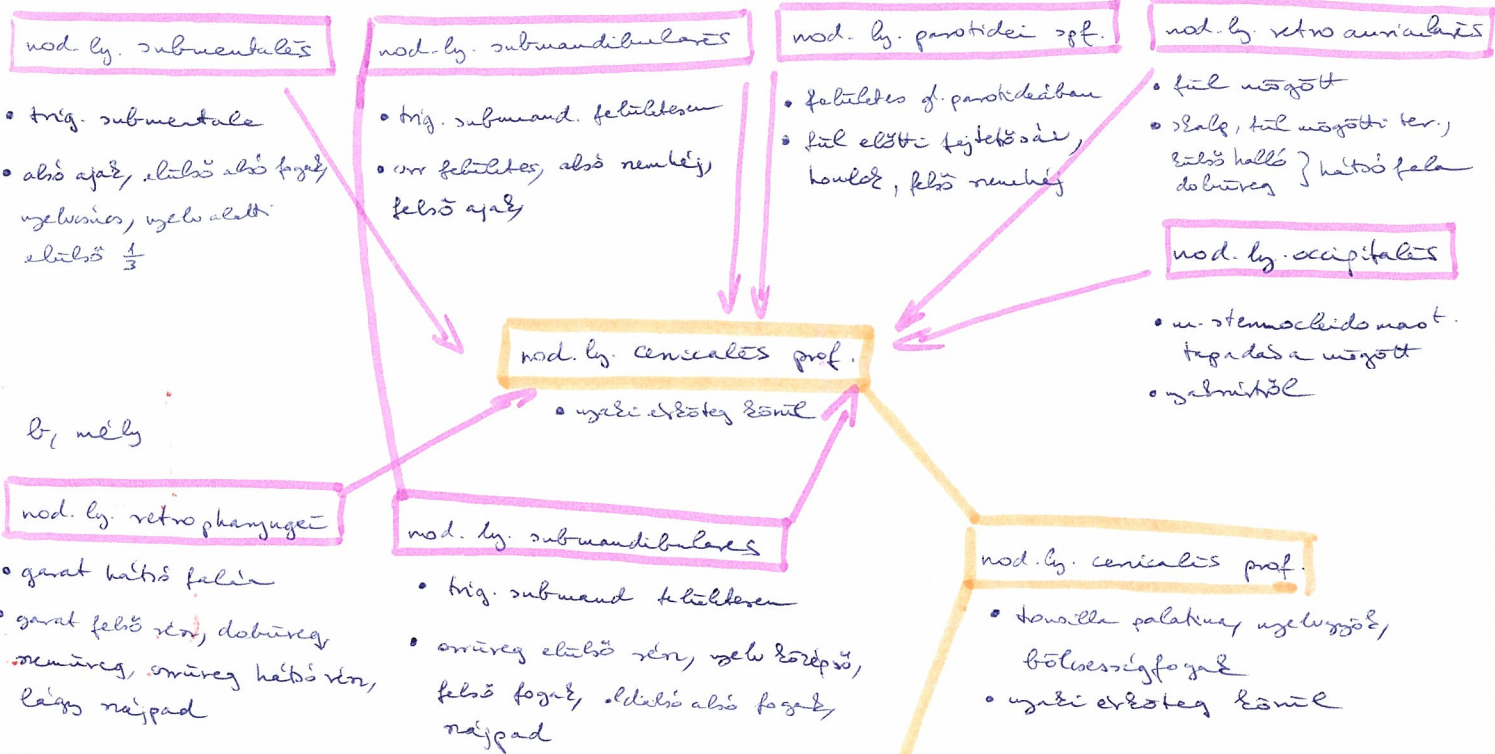 nod. ly. submentalēs
• trig. submentale
• alsó ajak, elülső alsó fogak,
nyelvcsúcs, nyelv alatti
elülső 1/3
nod. ly. submandibularēs
• trig. submand. felületesen
• orr felületes, alsó szemhéj,
felső ajak
nod. ly. parotidei spf.
• felületes gl. parotideában
• fül előtti fejtetősáv,
homlok, felső szemhéj
nod. ly. retroauricularēs
• fül mögött
• skalp, fül mögötti ter.,
külső halló } hátsó fala
dobüreg
nod. ly. occipitalēs
• m. sternocleidomast.
tapadása mögött
• nyakszirtről
nod. ly. cervicalēs prof.
• nyaki érköteg körül
b, mély
nod. ly. retropharyngei
• garat hátsó falán
• garat felső rész, dobüreg,
szemüreg, orrüreg hátsó rész,
lágy szájpad
nod. ly. submandibulares
• trig. submand felületesen
• orrüreg elülső rész, nyelv középső,
felső fogak, oldalsó alsó fogak,
szájpad
nod. ly. cervicalēs prof.
• tonsilla palatina, nyelvgyök,
bölcsességfogak
• nyaki érköteg körül